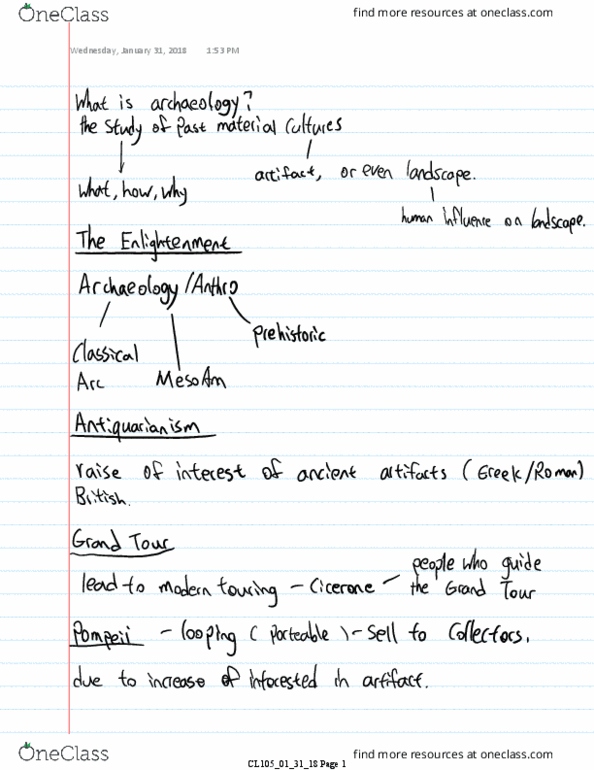 OneClass
find more resources at oneclass.com
Wednesday, January 31, 2018 1:53 PM
What is archaeology?
the study of Past material Cultures
artifact, or even landscape.
What, how, why
human influence on landscape.
The Enlightenment
Archaeology/Anthro
Prehistoric
Classical
Arc MesoAm
Antiquarianism
raise of interest of ancient artifacts (Greek/Roman)
British.
Grand Tour
people who guide
lead to modern touring - Cicerone - the Grand Tour
Pompeii - looping (Porteable) - Sell to Collectors.
due to increase of interested in artifact.
OneClass
find more resources at oneclass.com
CL105_01_31_18 Page 1